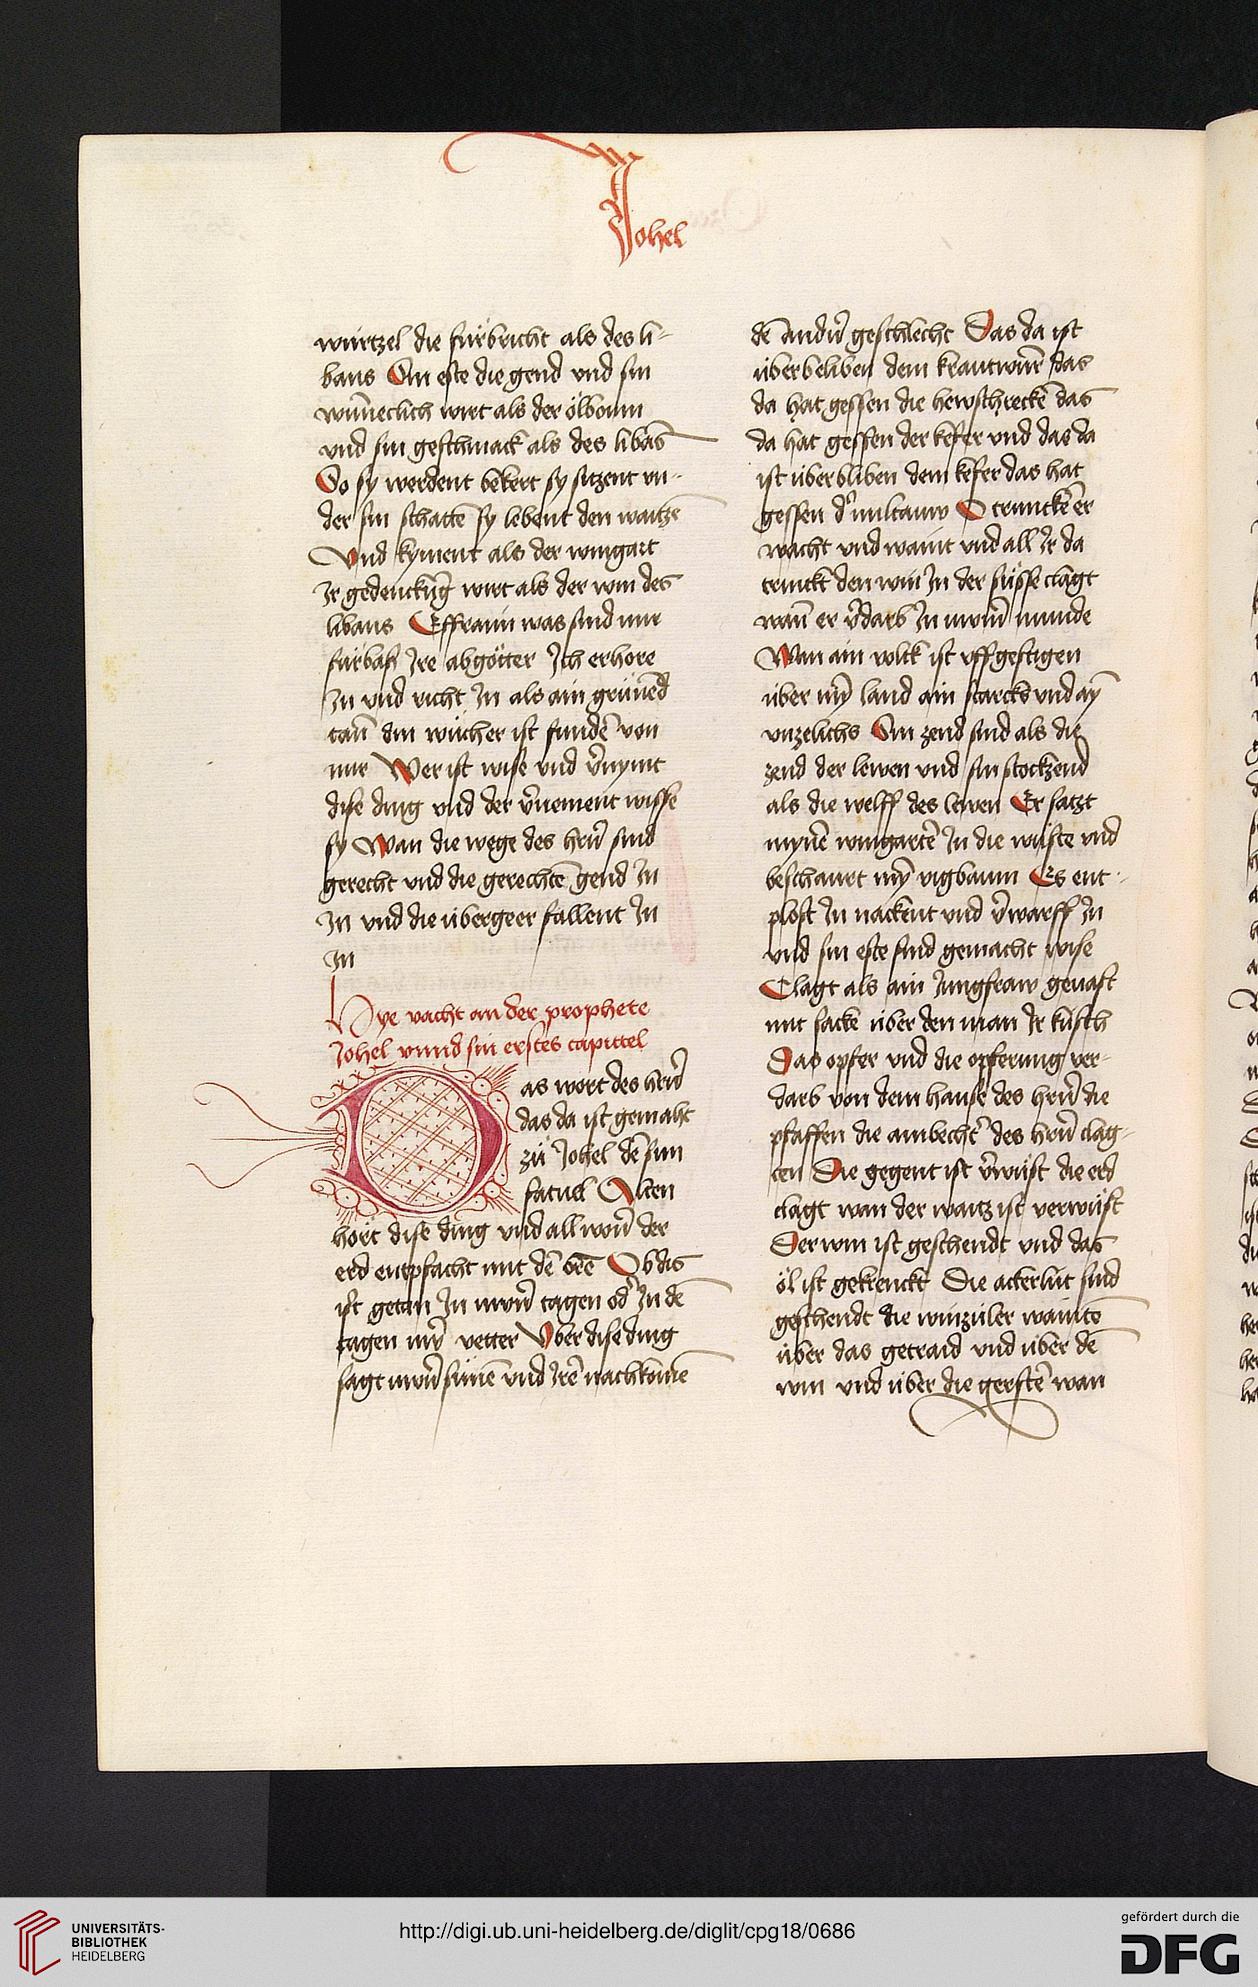 Johel
wurtzel die fúrbricht als des li-
bans Sin este die gend vnd sin
wuneclich wirt als der ölboum
vnd sin geschmack als des libās
So sy werdent bekert sy sitzent vn-
der sin schattē sy lebent den waitzē
Vnd kyment als der wingart
Jr gedenckūg wirt als der win des
libans Effraim was sind mir
fúrbaß Jre abgötter Jch erhöre
Jn vnd richt Jn als ain grúnēd
tañ din wúcher ist fundē von
mir Wer ist wise vnd v̄nymt
dise ding vnd der v̄nement wisse
sy Wan die wege des hrñ sind
gerecht vnd die gerechtē gend Jn
Jn vnd die úbergeer fallent Jn
Jn
Hye vacht an der prophete
Johel vnnd sin erstes capittel
Das wort des hrñ
das da ist gemaht
zú Johel dē sun
fatuel Alten
hört dise ding vnd all woñ der
erd entpfacht mit dē orē Ob dis
ist getan Jn uwrñ tagen od' Jn dē
tagen uwr̄ vetter Vber dise ding
sagt uwrñ súnē vnd Jrē nachkomē
dē andrñ geschlecht Das da ist
úberbeliben dem krautwúrm das
da hat gessen die hewschreckē das
da hat gessen der kefer vnd das da
ist úberbliben dem kefer das hat
gessen d' miltauw O trunckē er
wacht vnd waint vnd all Jr da
trinckt den win Jn der sússe clagt
wañ er v̄darb Jn uwrm munde
Wan ain volck ist vffgestigen
úber my̅ land ain starcks vnd ay̅
vnzelichs Sin zend sind als die
zend der lewen vnd sin stockzend
als die welff des lewen Er satzt
mynē wingartē Jn die wúste vnd
beschauet my̅ vigbaum Es ent-
plöst Jn nackent vnd v̄warff Jn
vnd sin este sind gemacht wise
Clagt als ain Jungfraw genast
mit sacke úber den man Jr kúsch
Das opfer vnd die opferung ver-
darb von dem hause des hrñ die
pfaffen die ambecht' des hrñ clag-
ten Die gegent ist v̄wúst die erd
clagt wan der waitz ist verwúst
Der win ist geschendt vnd das
öl ist gekrenckt Die ackerlút sind
geschendt die winzúler waintē
úber das getraid vnd úber dē
win vnd úber die gerstē wan
UNIVERSITÄTS-
BIBLIOTHEK
HEIDELBERG
http://digi.ub.uni-heidelberg.de/diglit/cpg18/0686
gefördert durch die
DFG